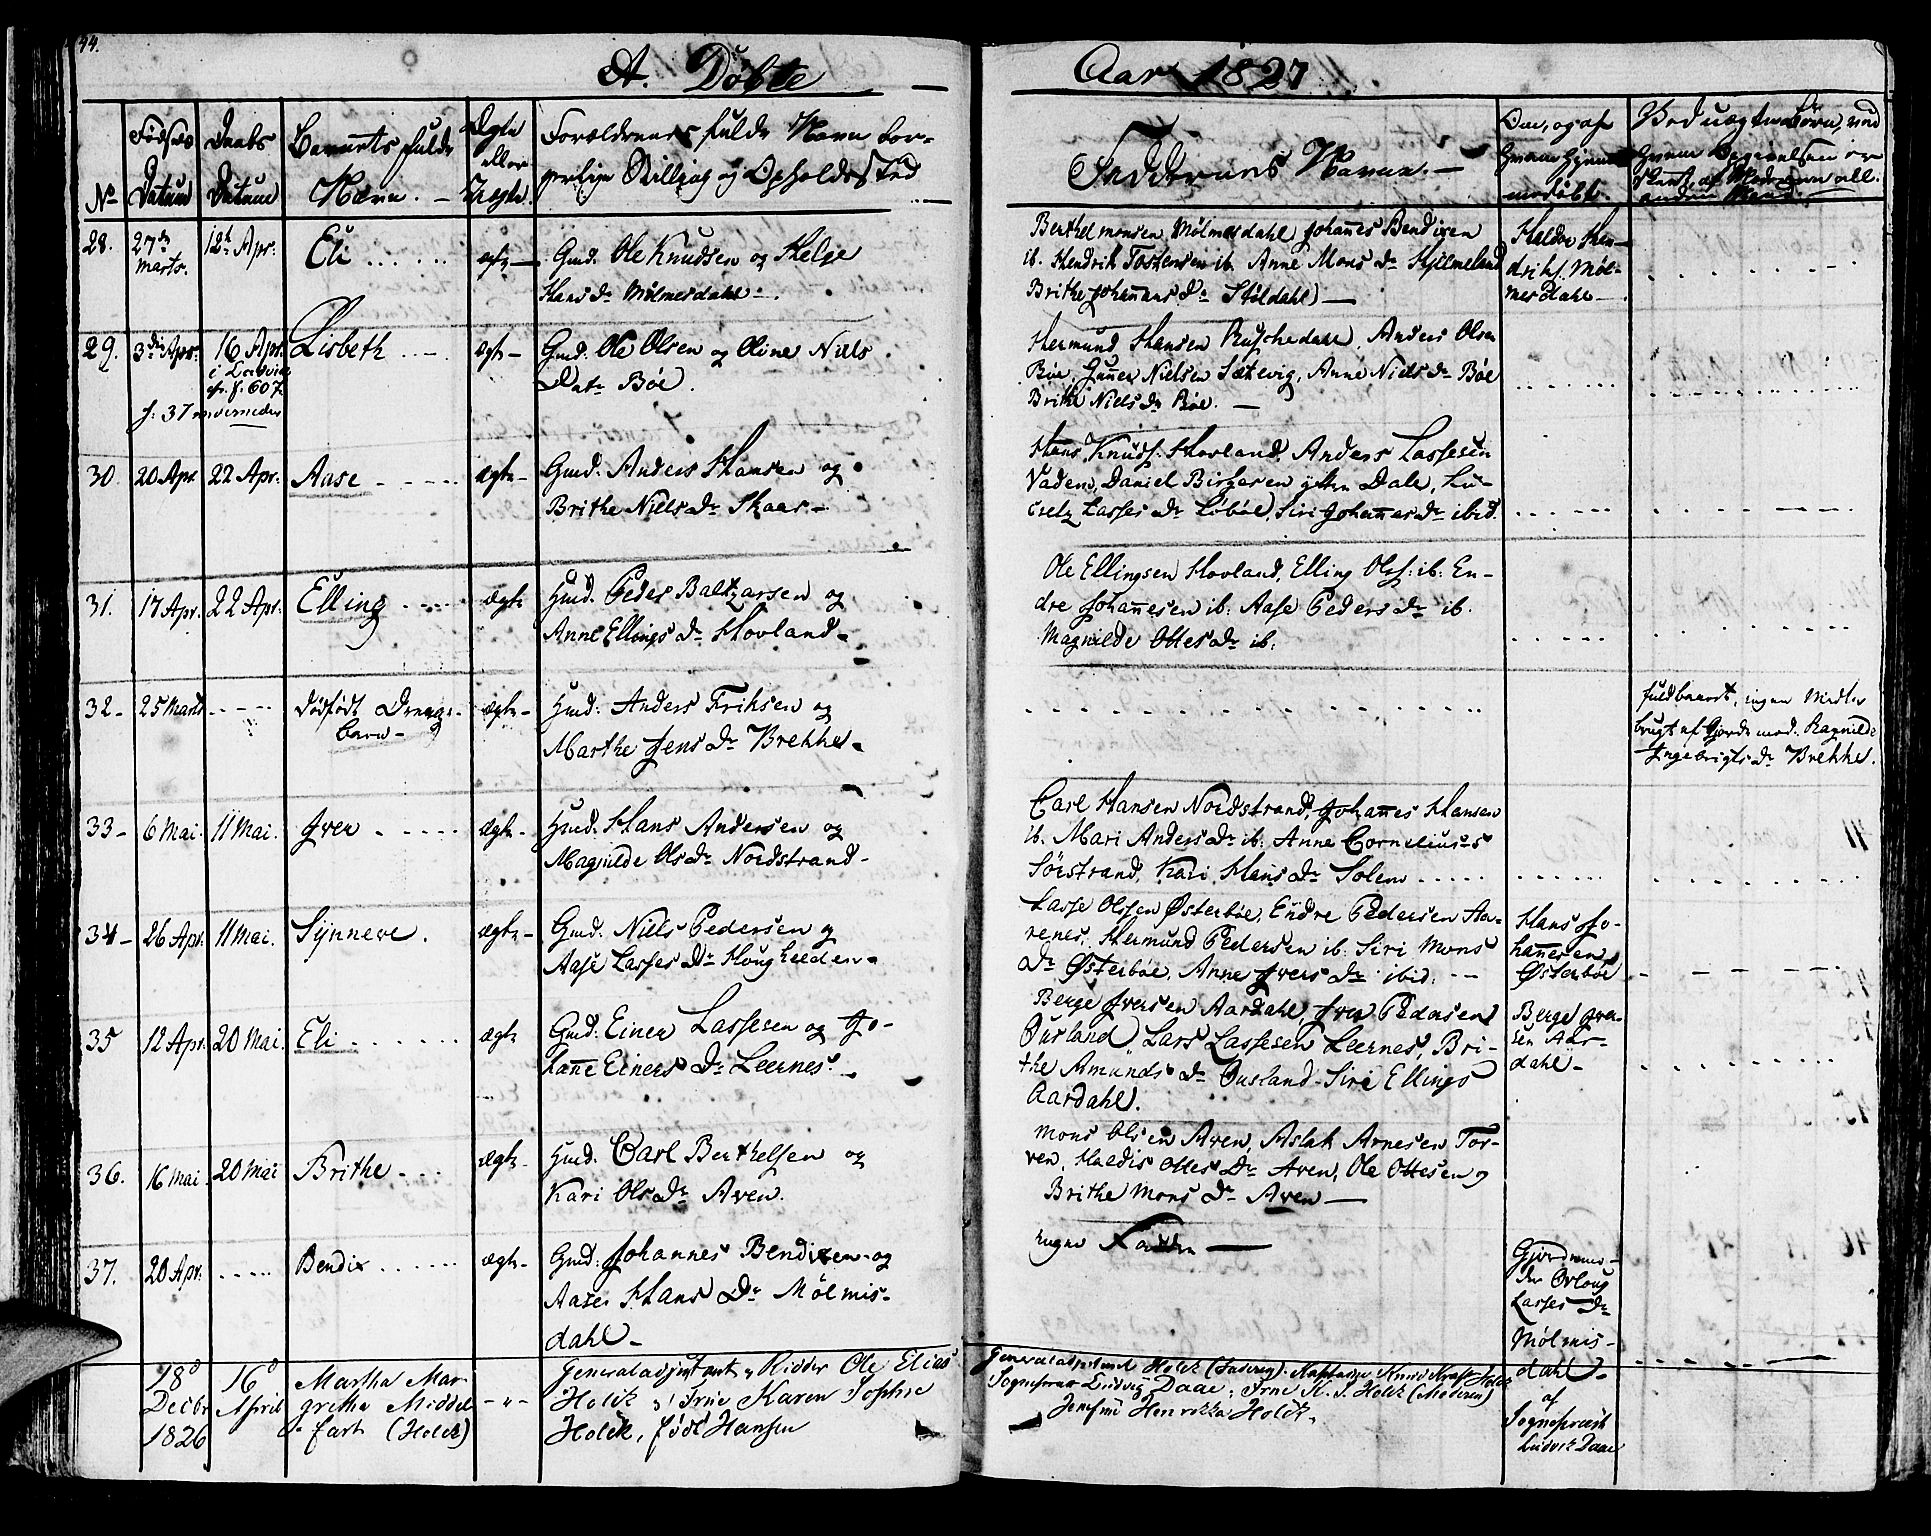 44.
A. Döbte
Aar 1827
No
Födsels Datum
Daabs Datum
Barnets fulde Navn. -
Ægte eller Uægte.
Forældrenes fulde Navn, bor-
gerlige Stilling og Opholdssted
Faddernes Navne. -
28. 27de Marts. 12te Apr. Eli ... ægte - Gmd. Ole Knudsen og Helge
Hans Dr Mölmesdahl -.
Berthel Monsen Mölmesdahl Johanes Bendixen
ib. Hendrik Tostensen ib. Anne Mons Dr Hjelmeland
Brithe Johannes Dr Stöldahl -
Heldre Hen-
driks. Möl-
mesdahl -
29. 3die Apr. 16 Apr. Lisbeth ægte - Gmd. Ole Olsen og Oline Niels
Datr Böe.
f: 37 nedenneder
Hermund Hansen Anders Olsen
Böe, Guner Nielsen Sætevig, Anne Niels Dr Böe
Brithe Niels Dr Böe. -
30. 20 Apr. 22 Apr. Aase ægte - Gmd. Anders Hansen og
Brithe Niels Dr Skaar -
Hans Knuds. Hovland, Anders Lassesen
Vadem, Daniel Birgesen ytre Dale, Lu-
cretz Lasses Dr Liböe, Siri Johannes Dr ibid.
31. 17 Apr. 22 Apr. Elling ægte Gmd. Peder Baltzarsen og
Anne Ellings Dr Hovland -
Ole Ellingsen Hovland, Elling Ols: ib: En-
dre Johanesen ib: Aase Peders Dr ib.
Magnilde Ottes Dr ib:
32 - 25 Marts dödfödt Drenge-
barn - ægte - Gmd: Anders Eriksen og
Marthe Jens Dr Brekke -
fuldbaaret, ingen Midler
brugt af Gjordemod. Ragnilde
Ingebrigts Dr Brekke.
33 - 6 Mai. 11 Mai. Iver ægte - Gmd. Hans Andersen og
Magnilde Ols Dr Nordstrand -
Carl Hansen Nordstrand, Johanes Hansen
ib. Mari Anders Dr ib: Anne Cornelius's
Sörstrand, Kari Hans Dr Solem
34 - 26 Apr. 11 Mai. Synneve. ægte - Gmd. Niels Pedersen og
Aase Lasses Dr
Lasse Olsen Østerböe, Endre Pedersen Aa-
renes, Hermund Pedersen ib. Siri Mons
Dr Østerböe, Anne Ivers Dr ibid.
Hans Jo-
hanesen
Østerböe
35 12 Apr. 20 Mai. Eli ægte Gmd. Einer Lassesen og Jo-
hane Einers Dr Leernes.
Berge Iversen Aardahl, Iver Pedersen
Ousland, Lars Lassesen Leernes, Bri-
the Amunds Dr Ousland, Siri Ellings
Aardahl.
Berge Iver-
sen Aar-
dahl -
36. 16 Mai 20 Mai Brithe ægte - Gmd. Carl Berthelsen og
Kari Ols Dr Aven.
Mons Olsen Aven, Aslak Arnesen Tor-
ven, Haldis Ottes Dr Aven, Ole Ottesen og
Brithe Mons Dr Aven -
37. 20 Apr. Bendix ægte - Gmd: Johannes Bendixen og
Aase Hans Dr Mölmis-
dahl -
ingen Faddere -
Gjordemo-
der Orloug
Lasses Dr
Mölmis-
dahl -
18de Decbr 1826 16de April Martha Mar-
gretha Middel-
fart (Holck) - " - Generaladjutant, Ridder Ole Elias
Holck, Frue Karen Sophie
Holck, födt Hansen
Generaladjutant Holck (Faderen). Kaptain Knud Holck
Sogneprest Ludvig Daae, Frue K. S. Holck (Moderen)
Jomfru Henrikka Holck.
af
Sogneprest
Ludvig Daae